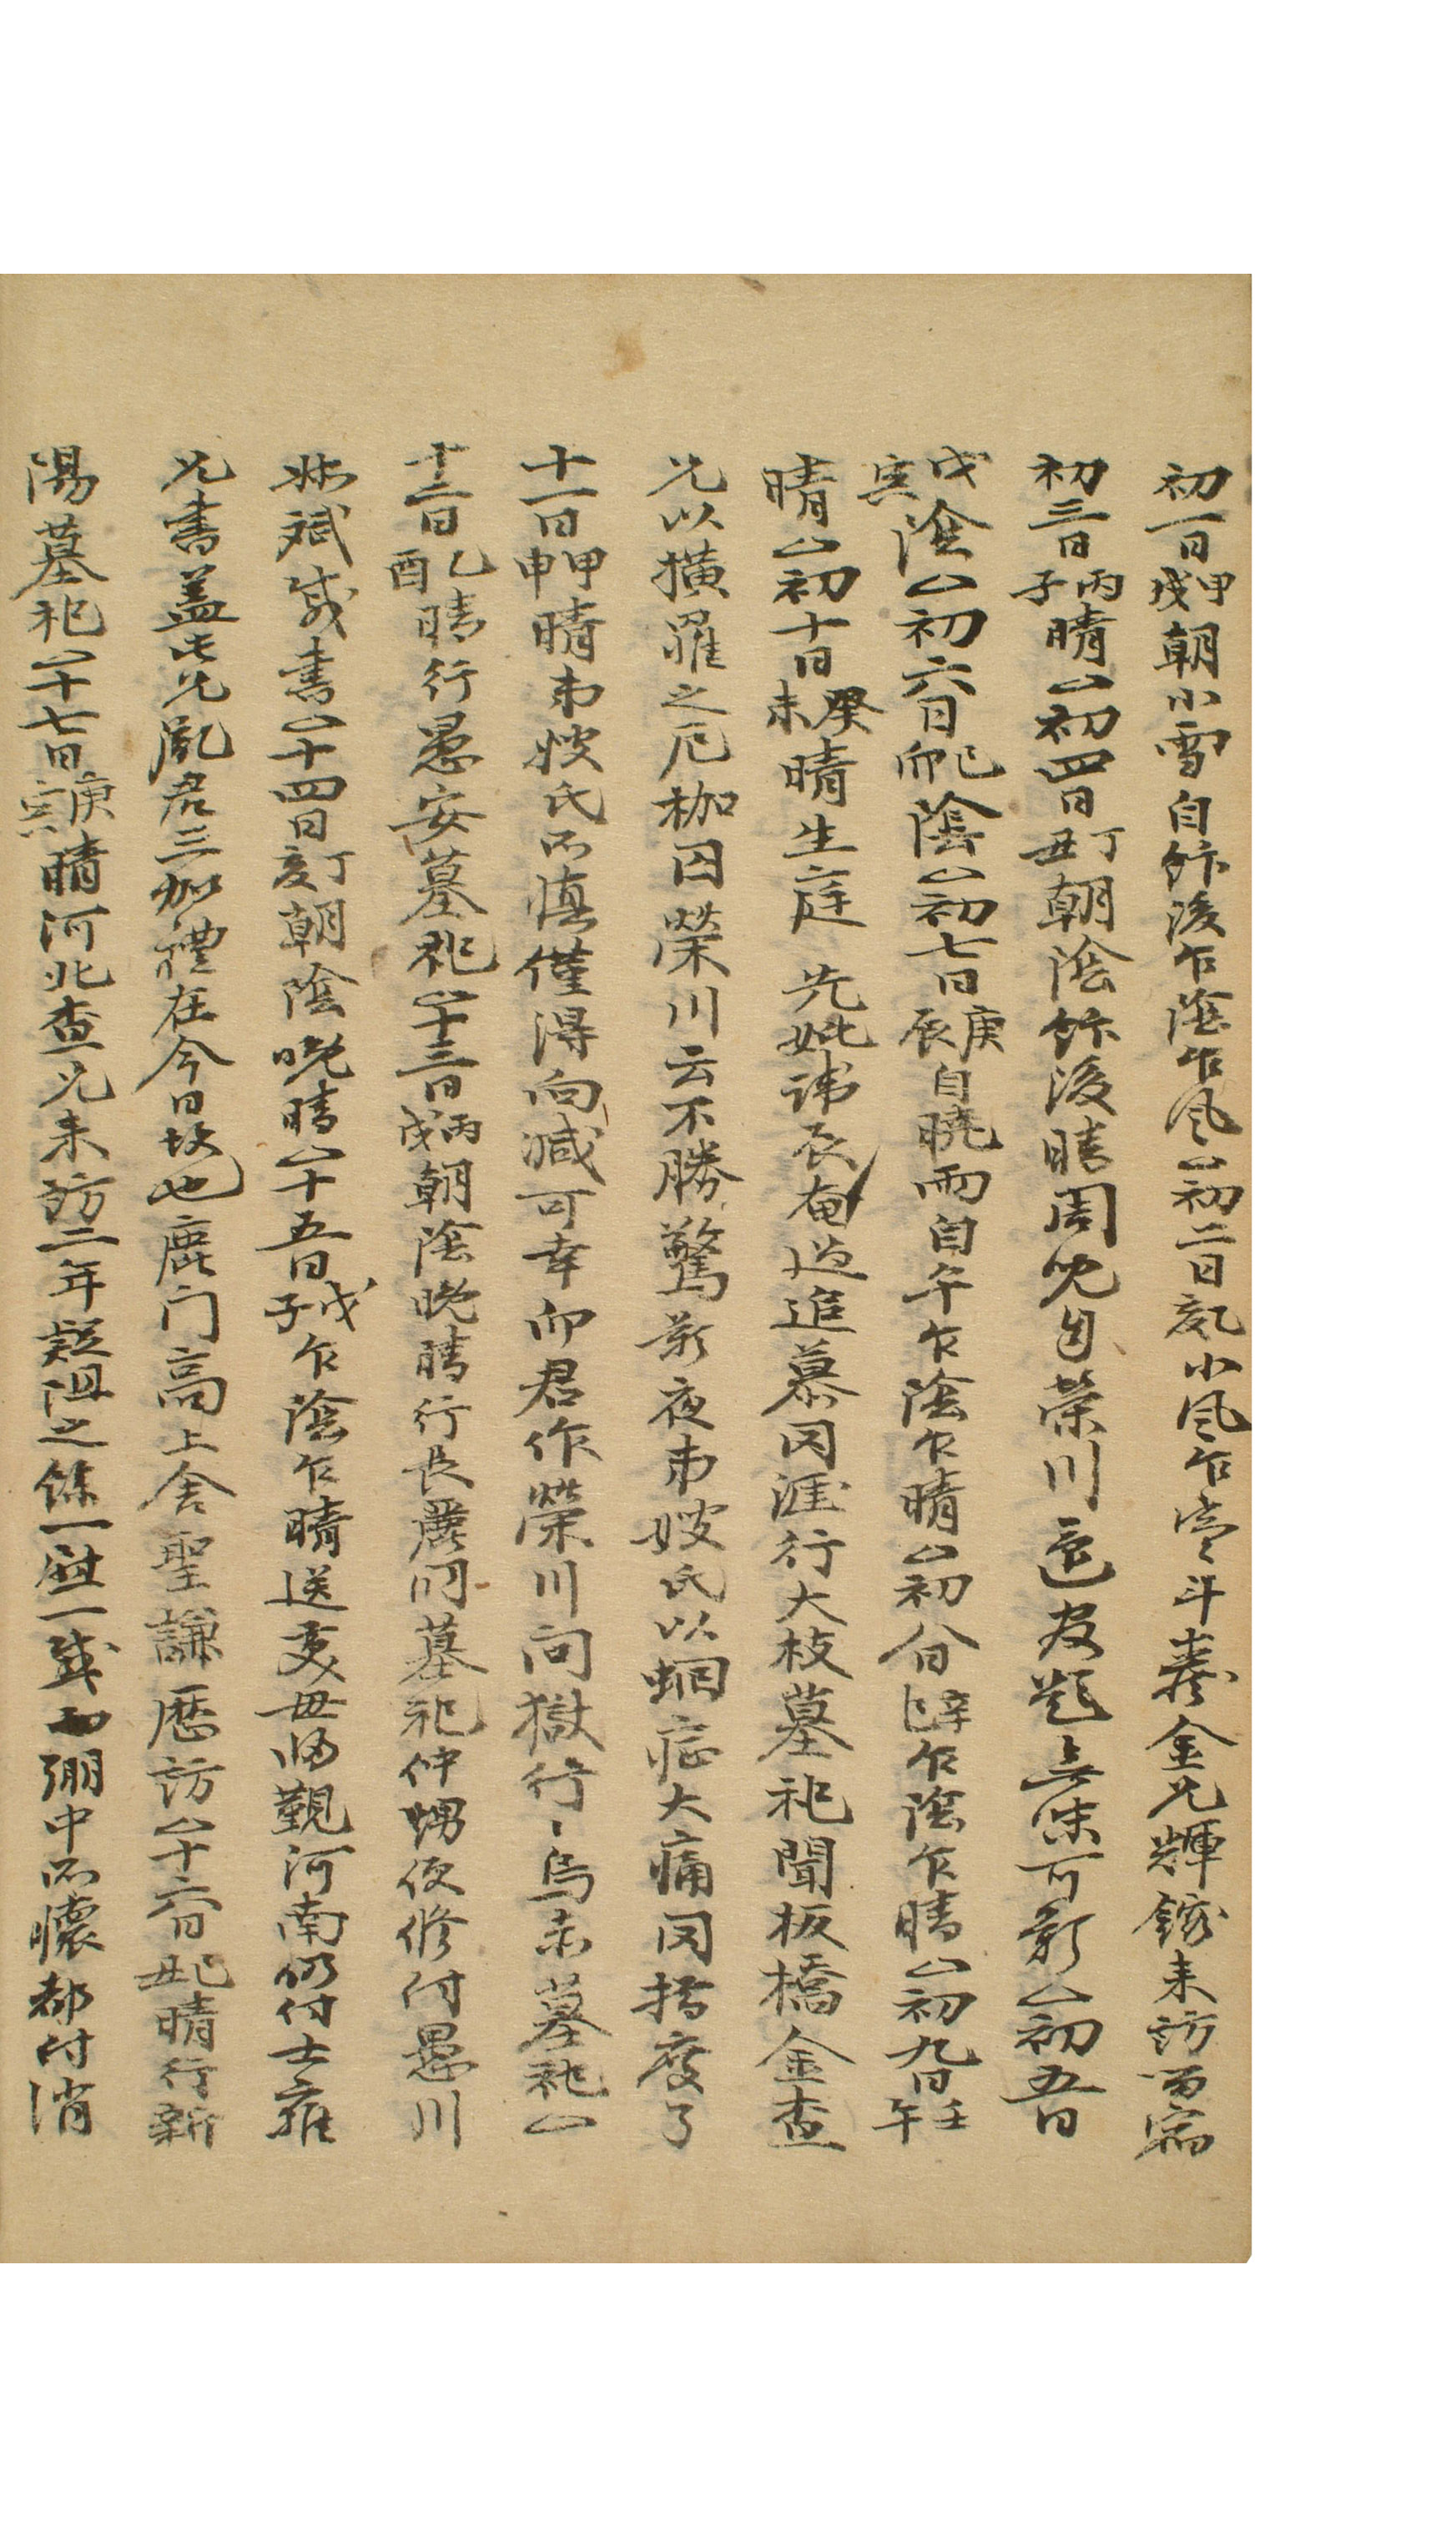 初一日甲戌朝小雪自飰後乍陰乍風〇初二日乙亥小風乍寒斗養金兄輝鎔来訪留宿
初三日丙子晴〇初四日丁丑朝陰飰後晴周兒自榮川還 可歎〇初五日
戊寅陰〇初六日己卯陰〇初七日庚辰自曉雨自午乍陰乍晴〇初八日辛巳乍陰乍晴〇初九日壬午
晴〇初十日癸未晴生庭 先妣諱辰奄過追慕罔涯行大枝墓祀聞板橋金査
兄以橫羅之厄枷囚榮川云不勝驚歎夜弟嫂氏以蛔症大痛罔措度了
十一日甲申晴弟嫂氏所愼僅得向減可幸卯君作榮川問獄行行烏赤墓祀〇
十二日乙酉晴行愚安墓祀〇十三日丙戌朝陰晚晴行長麓洞墓祀仲甥便修付愚川
妹 書〇十四日丁亥朝陰晚晴〇十五日戊子乍陰乍晴送亥母歸覲河南仍付士雍
兄書盖此兄胤君三加禮在今日故也鹿门高上舍聖謙歷訪〇十六日己丑晴行新
陽墓祀〇十七日庚寅晴河北査兄来訪二年 阻之餘一慰一感而弸中所懷都付消